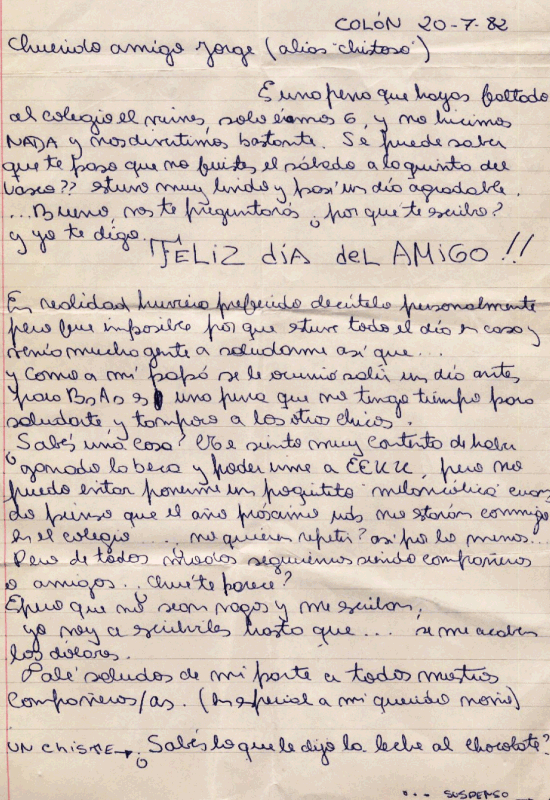 COLÓN 20-7-82
Querido amigo Jorge (alias "chistoso")
Es una pena que hayas faltado
al colegio el viernes, solo éramos 6, y no hicimos
NADA y nos divertimos bastante. Se puede saber
que te paso que no fuistes el sábado a la quinta del
Vasco?? estuvo muy lindo y pasé un día agradable.
...Bueno, vos te preguntarás ¿por qué te escribo?
y yo te digo. ¡¡FELIZ díA del AMiGO!!
En realidad hubiera preferido decírtelo personalmente
pero fue imposible por que estuve todo el día en casa y
venía mucha gente a saludarme así que...
y como a mi papá se le ocurrió salir un día antes
para BsAs es una pena que no tenga tiempo para
saludarte, y tampoco a los otros chicos.
¿Sabés una cosa? Me siento muy contenta de haber
ganado la beca y poder irme a EEUU, pero no
puedo evitar ponerme un poquitito "melancólica" cuan
do pienso que el año próximo uds no estarán conmigo
en el colegio.... no quieren repetir? así por lo menos...
Pero de todos modos seguiremos siendo compañeros
o amigos... Qué te parece?
Espero que no sean vagos y me escriban,
yo voy a escribirles hasta que... se me acaben
los dólares.
Dale saludos de mi parte a todos nuestros
compañeros/as. (En especial a mi querido novio)
UN CHISTE→ ¿Sabés lo que le dijo la leche al chocolate?
... SUSPENSO